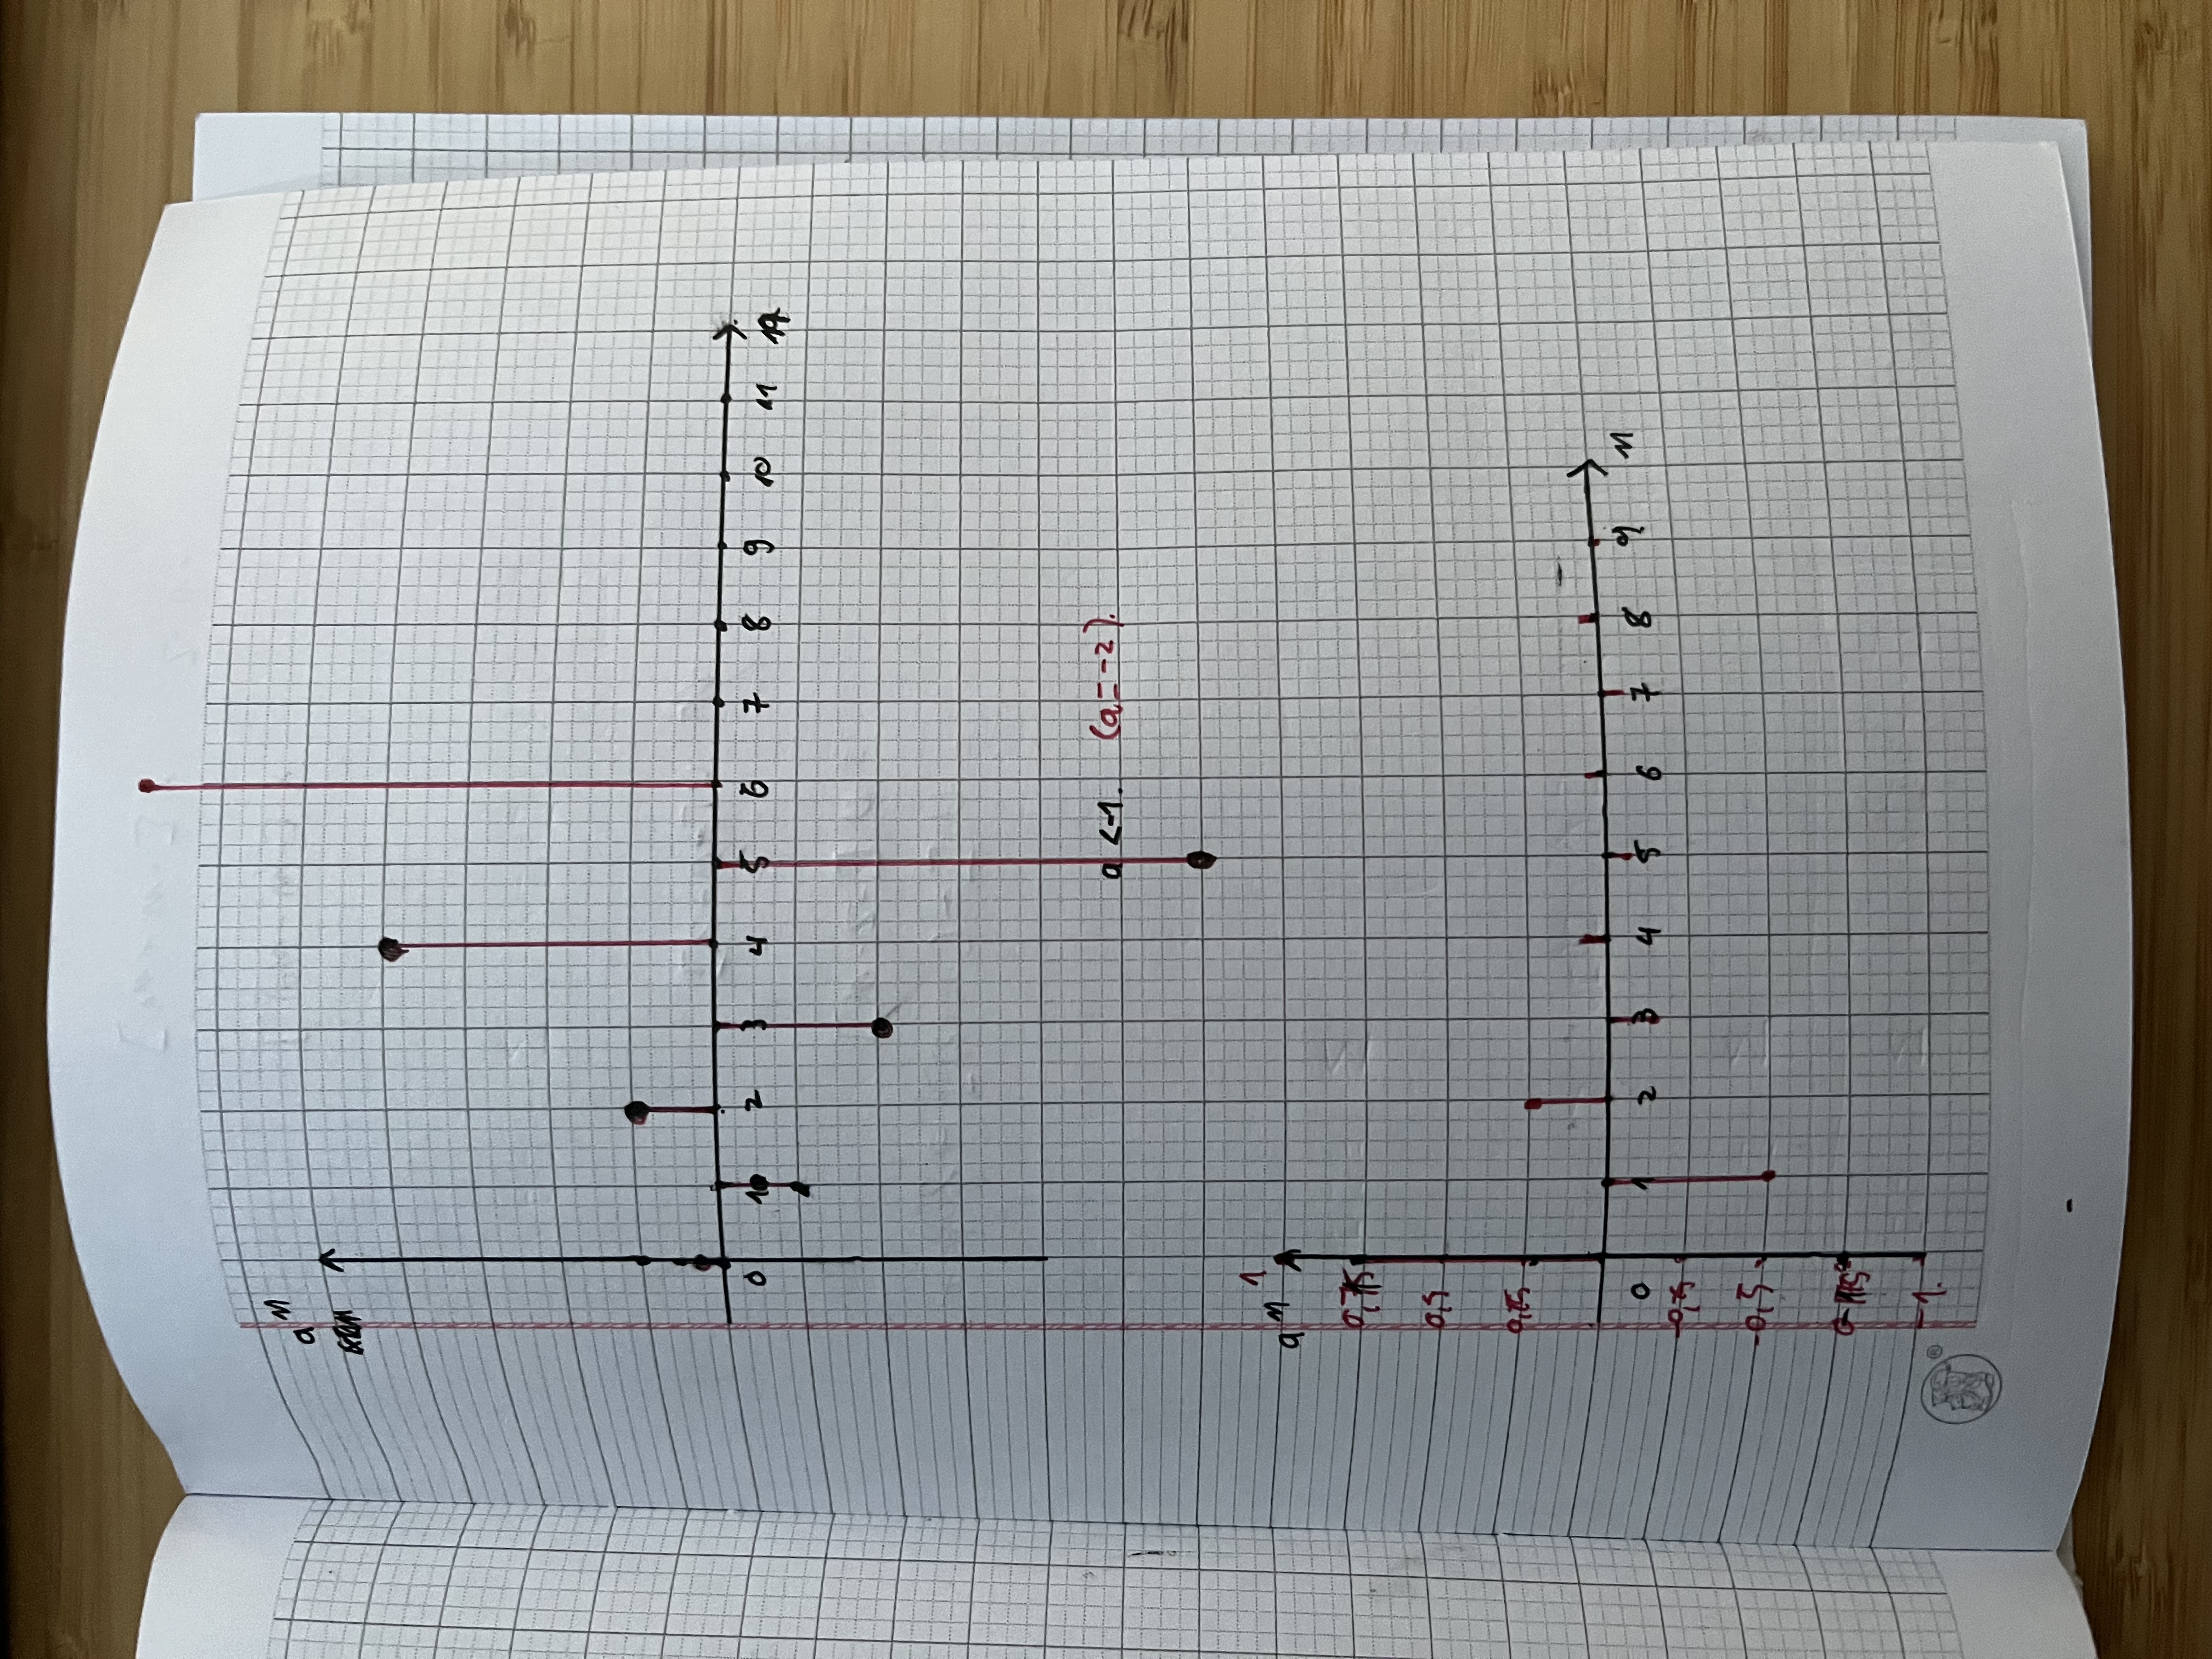 a^n
0 1 2 3 4 5 6 7 8 9 10 11
a <-1. (a=-2).
1
a^n
0,75
0,5
0,25
0 1 2 3 4 5 6 7 8 9 n
-0,25
-0,5
-1.
®